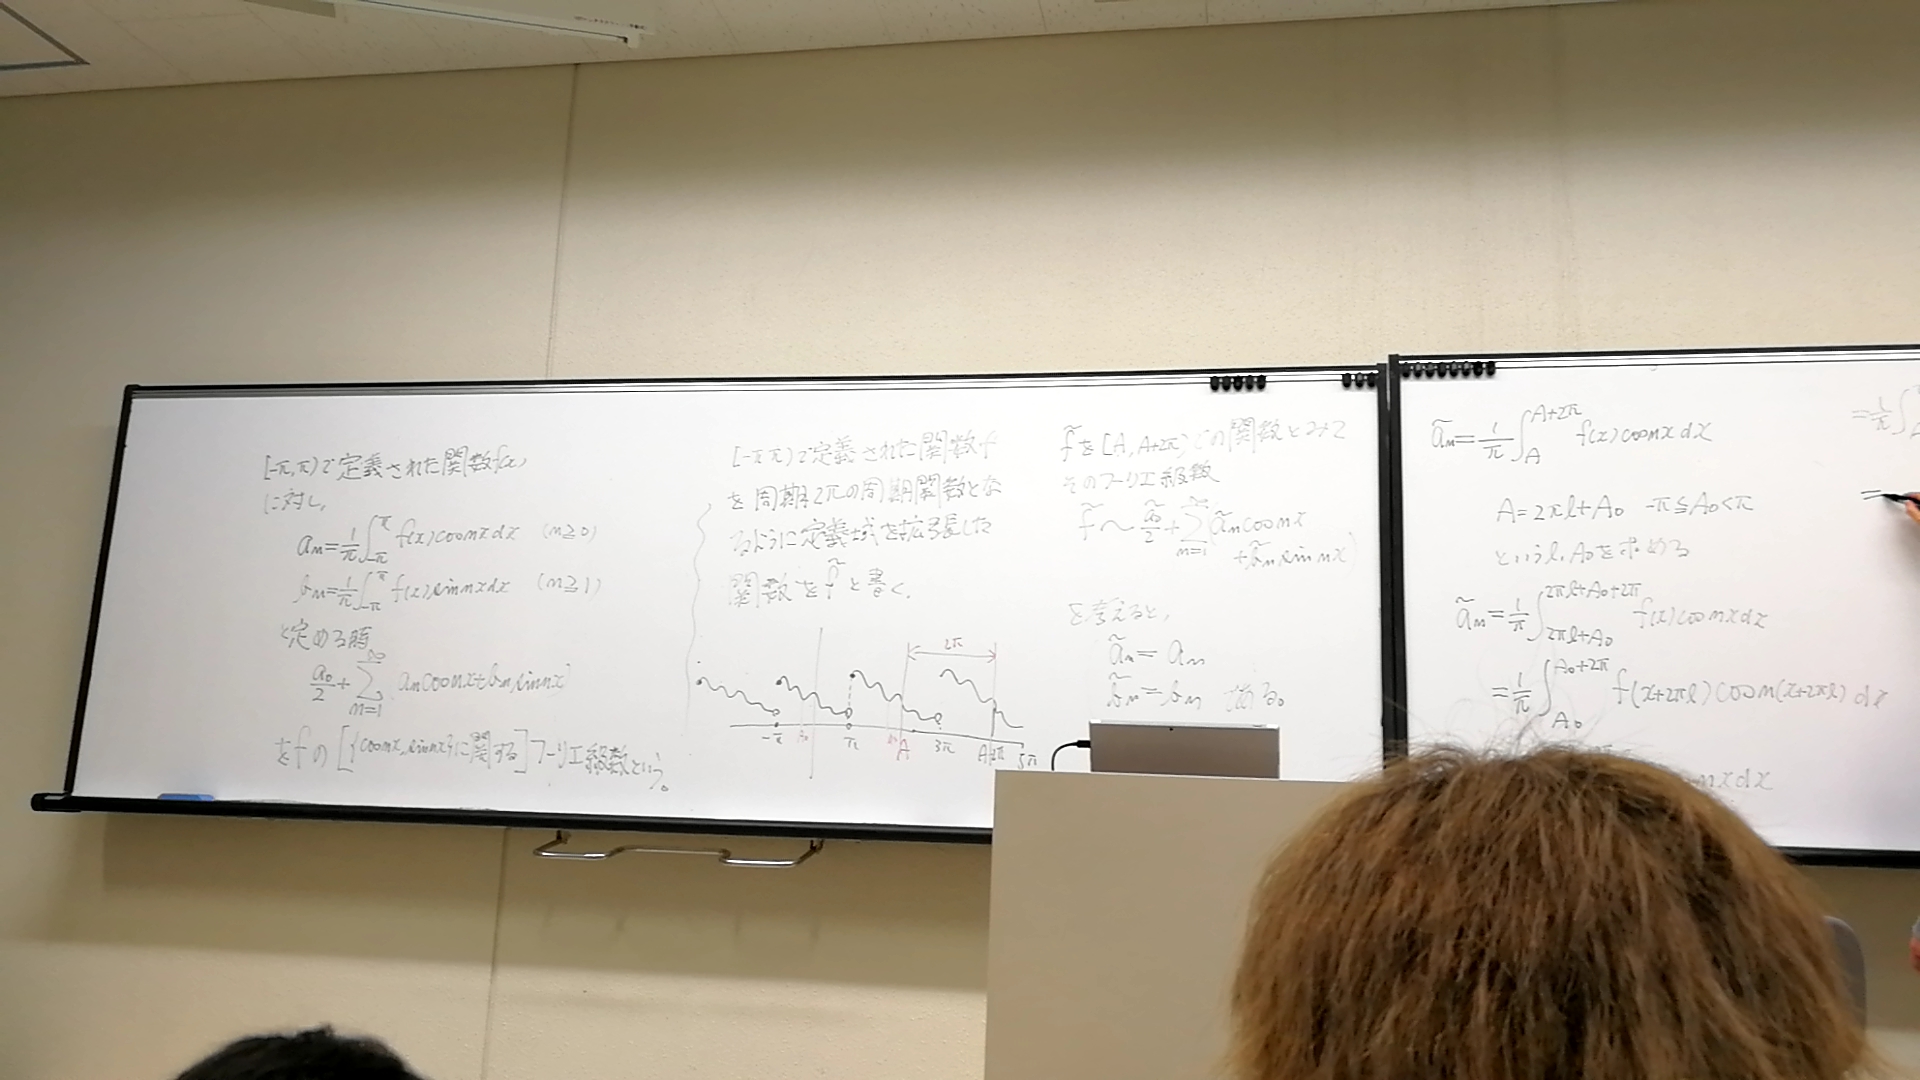 [-π, π) で定義された関数f(x)
に対し,
aₙ = 1/π ∫_{-π}^{π} f(x) cos nx dx (n≧0)
bₙ = 1/π ∫_{-π}^{π} f(x) sin nx dx (n≧1)
と定める時,
a₀/2 + Σ_{n=1}^{∞} (aₙ cos nx + bₙ sin nx)
をfの [{cos nx, sin nx}に関する] フーリエ級数という。
[-π, π) で定義された関数f
を周期2πの周期関数とな
るように定義域を拡張した
関数を f̃ と書く.
2π
-π A₀ π A 3π A+2π 5π
f̃を [A, A+2π) での関数とみて
そのフーリエ級数
f̃ ~ ã₀/2 + Σ_{n=1}^{∞} (ãₙ cos nx
+ b̃ₙ sin nx)
を考えると,
ãₙ = aₙ
b̃ₙ = bₙ である。
ãₙ = 1/π ∫_{A}^{A+2π} f(x) cos nx dx
A = 2πl + A₀ -π ≦ A₀ < π
というl, A₀を求める
ãₙ = 1/π ∫_{2πl+A₀}^{2πl+A₀+2π} f(x) cos nx dx
= 1/π ∫_{A₀}^{A₀+2π} f(x+2πl) cos n(x+2πl) dx
nx dx
= 1/π ∫
=